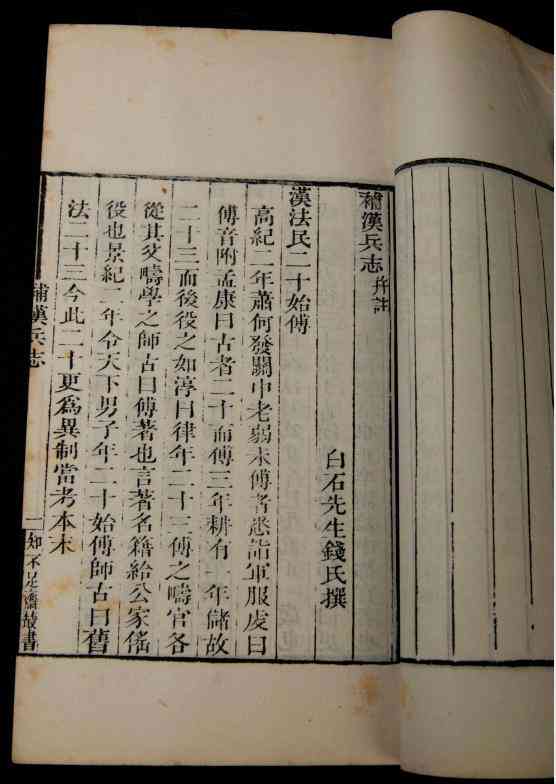 補漢兵志 并註
白石先生錢氏撰
漢法民二十始傅
高紀二年蕭何發關中老弱未傅者悉詣軍服虔曰
傅音附孟康曰古者二十而傅三年耕有一年儲故
二十三而後役之如淳曰律年二十三傅之疇官各
從其父疇學之師古曰傅著也言著名籍給公家徭
役也景紀二年令天下男子年二十始傅師古曰舊
法二十三今此二十更爲異制當考本末
補漢兵志 一 知不足齋叢書